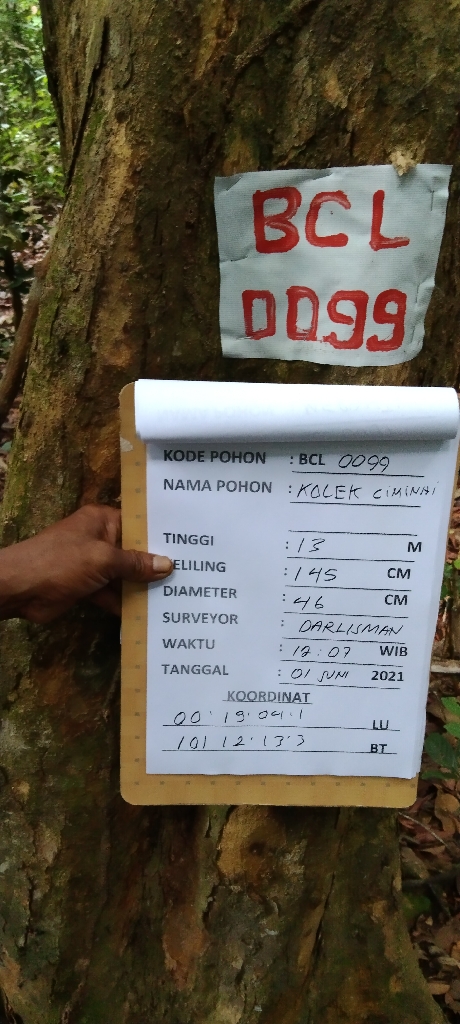 BCL
0099
KODE POHON : BCL 0099
NAMA POHON : KOLEK CIMINAI
TINGGI : 13 M
ELILING : 145 CM
DIAMETER : 46 CM
SURVEYOR : DARLISMAN
WAKTU : 12:07 WIB
TANGGAL : 01 JUNI 2021
KOORDINAT
00' 19' 04' 1 LU
101 12' 13' 3 BT